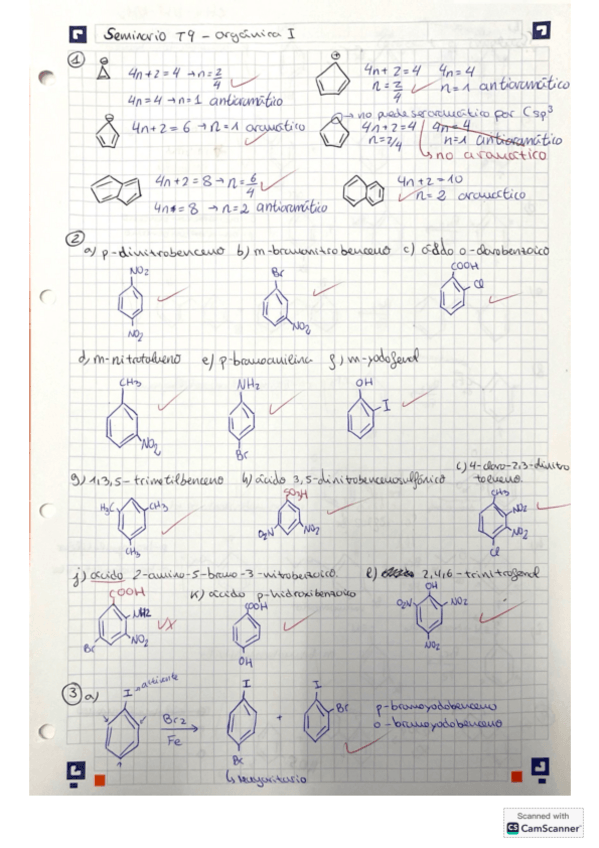 Seminario T9 - Orgánica I
1
4n+2=4 → n=2/4
4n=4 → n=1 antiaromático
4n+2=4 4n=4
n=2/4 n=1 antiaromático
4n+2=6 → n=1 aromático
→ no puede ser aromático por Csp3
4n+2=4 4n=4
n=2/4 n=1 antiaromático
↳ no aromático
4n+2=8 → n=6/4
4n=8 → n=2 antiaromático
4n+2=10
n=2 aromático
2
a) p-dinitrobenceno b) m-bromonitrobenceno c) ácido o-clorobenzoico
NO2 Br COOH
Cl
NO2 NO2
d) m-nitrotolueno e) p-bromoanilina f) m-yodofenol
CH3 NH2 OH
I
NO2 Br
g) 1,3,5-trimetilbenceno h) ácido 3,5-dinitrobencenosulfónico i) 4-cloro-2,3-dinitro
tolueno
H3C CH3 SO3H CH3
NO2
O2N NO2 NO2
CH3 Cl
j) ácido 2-amino-5-bromo-3-nitrobenzoico. l) 2,4,6-trinitrofenol
k) ácido p-hidroxibenzoico
COOH COOH OH
NH2 O2N NO2
Br NO2
OH NO2
3 a)
I → activante
Br2
Fe
I + I
Br
Br
p-bromoyodobenceno
o-bromoyodobenceno
↳ mayoritario
Scanned with
CS CamScanner